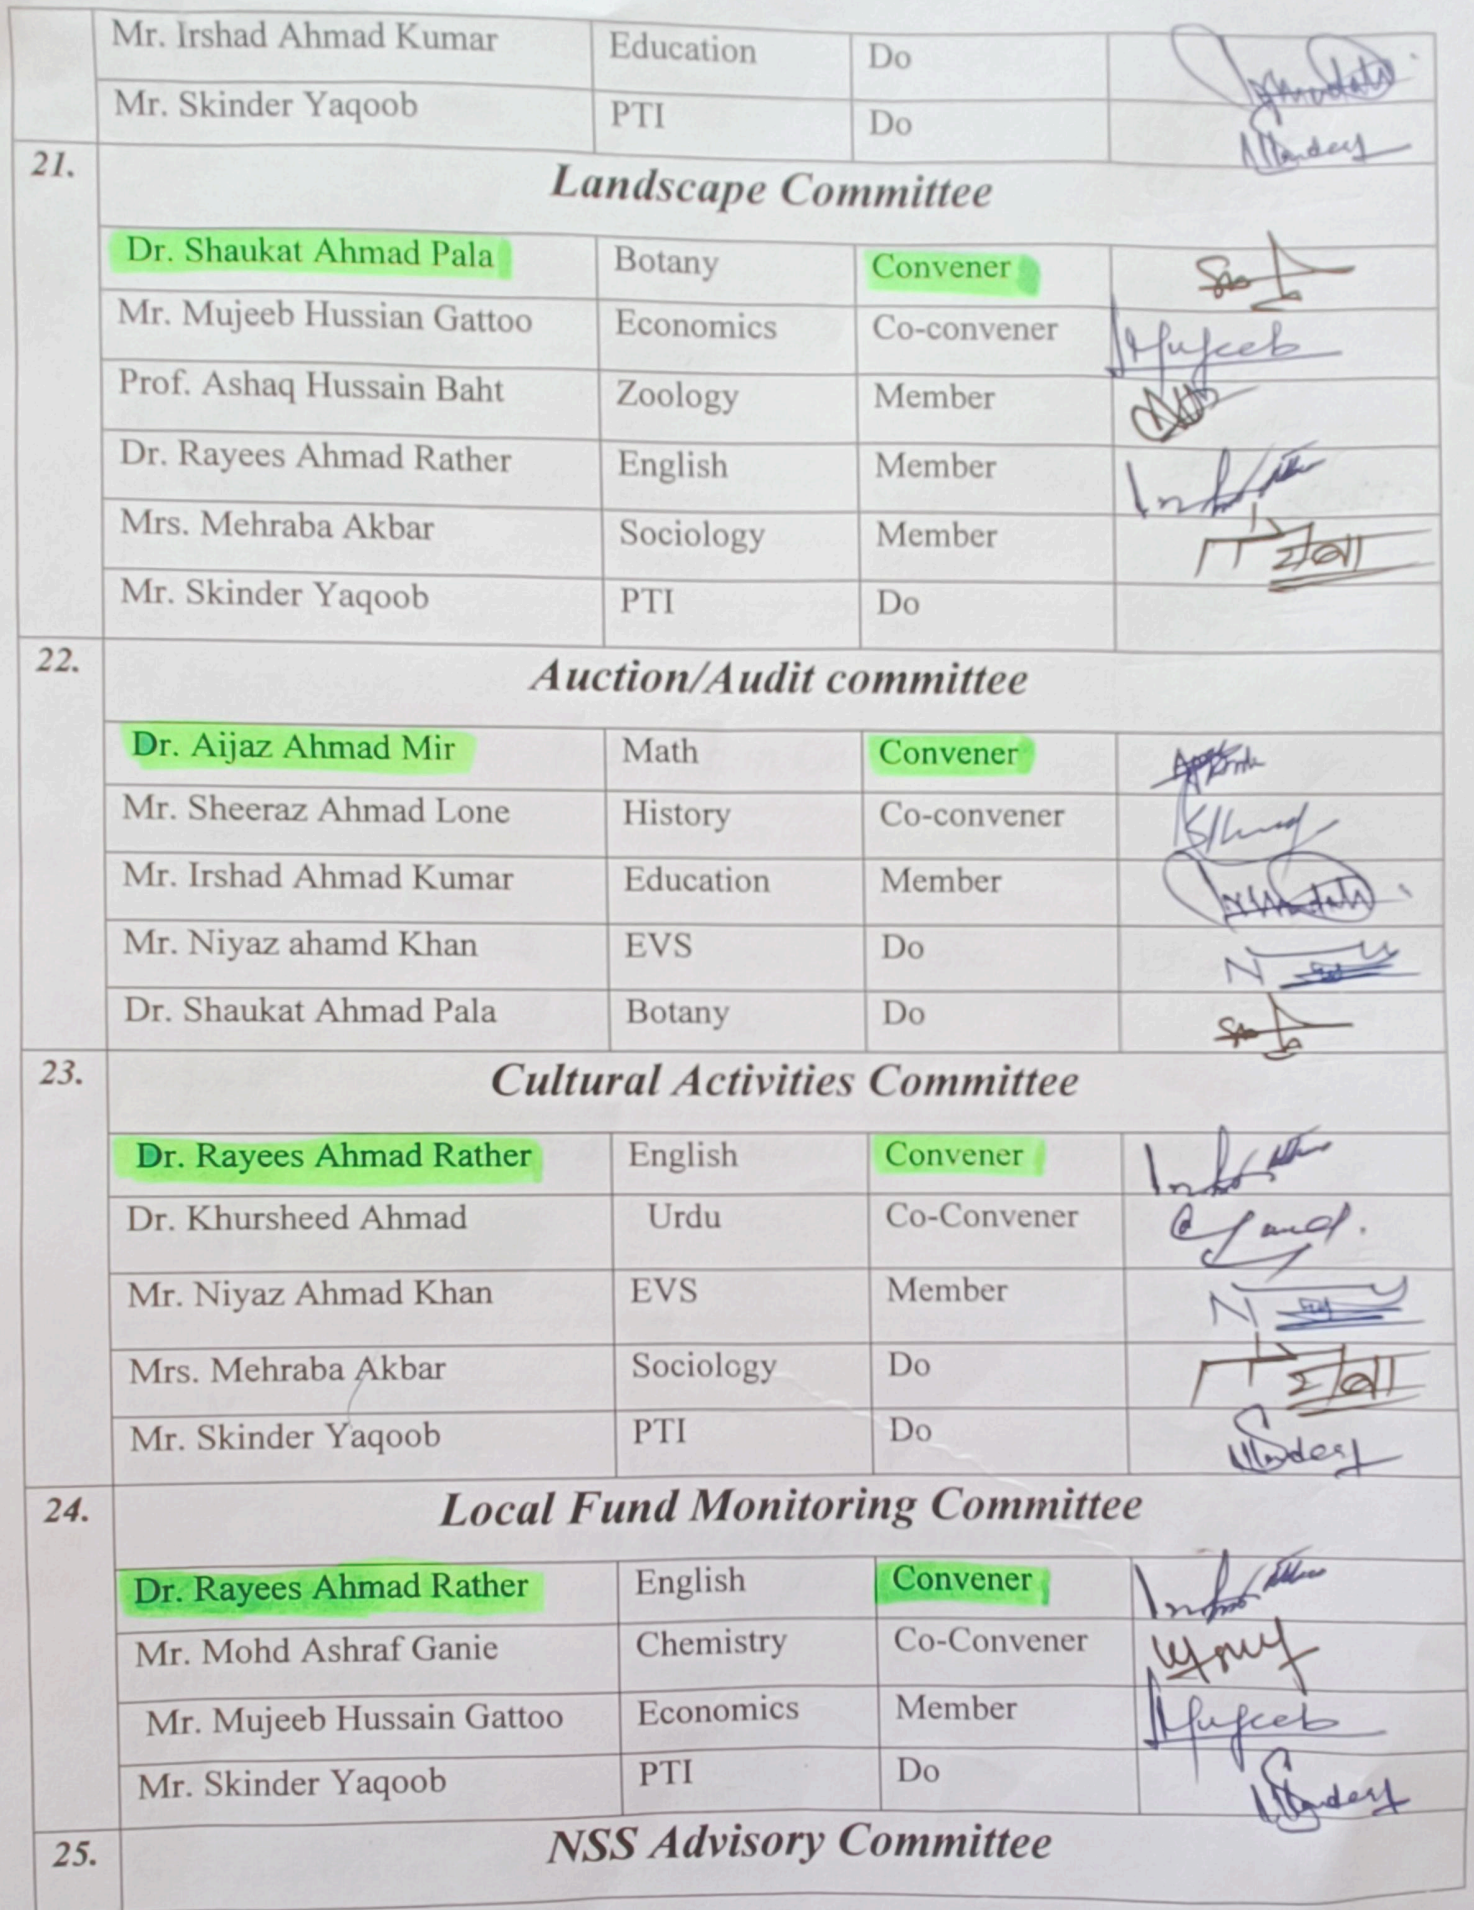 Mr. Irshad Ahmad Kumar Education Do
Mr. Skinder Yaqoob PTI Do
21. Landscape Committee
Dr. Shaukat Ahmad Pala Botany Convener
Mr. Mujeeb Hussian Gattoo Economics Co-convener Mujeeb
Prof. Ashaq Hussain Baht Zoology Member
Dr. Rayees Ahmad Rather English Member
Mrs. Mehraba Akbar Sociology Member
Mr. Skinder Yaqoob PTI Do
22. Auction/Audit committee
Dr. Aijaz Ahmad Mir Math Convener
Mr. Sheeraz Ahmad Lone History Co-convener
Mr. Irshad Ahmad Kumar Education Member
Mr. Niyaz ahamd Khan EVS Do
Dr. Shaukat Ahmad Pala Botany Do
23. Cultural Activities Committee
Dr. Rayees Ahmad Rather English Convener
Dr. Khursheed Ahmad Urdu Co-Convener
Mr. Niyaz Ahmad Khan EVS Member
Mrs. Mehraba Akbar Sociology Do
Mr. Skinder Yaqoob PTI Do
24. Local Fund Monitoring Committee
Dr. Rayees Ahmad Rather English Convener
Mr. Mohd Ashraf Ganie Chemistry Co-Convener
Mr. Mujeeb Hussain Gattoo Economics Member Mujeeb
Mr. Skinder Yaqoob PTI Do
25. NSS Advisory Committee